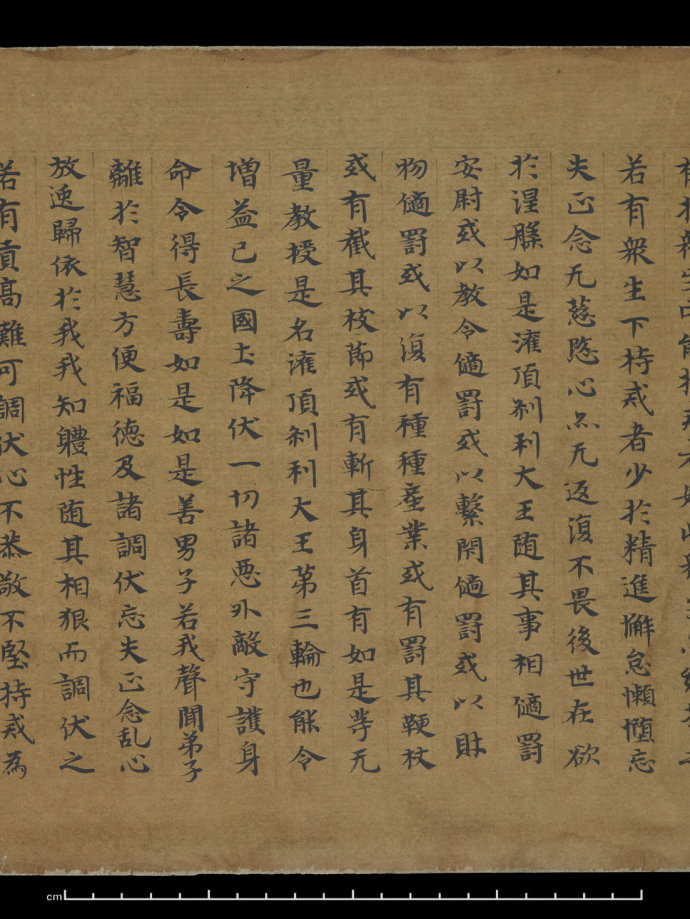 若有衆生下持戒者少於精進懈怠懶憜忘
失正念无慈愍心亦无返復不畏後世在欲
於如是灌頂刹利大王随其事相謫罰
安尉或以教令謫罰或以繫閇謫罰或以財
物謫罰或以復有種種產業或有罰其鞕杖
或有截其枝莭或有斬其身首有如是等无
量教授是名灌頂刹利大王苐三輪也能令
增益己之國土降伏一切諸惡外敵守護身
命令得長壽如是如是善男子若我聲聞弟子
離於智慧方便福德及諸調伏忘失正念乱心
放逸歸依於我我知軆性随其相狠而調伏之
若有貢高難可調伏心不恭敬不堅持戒為
cm